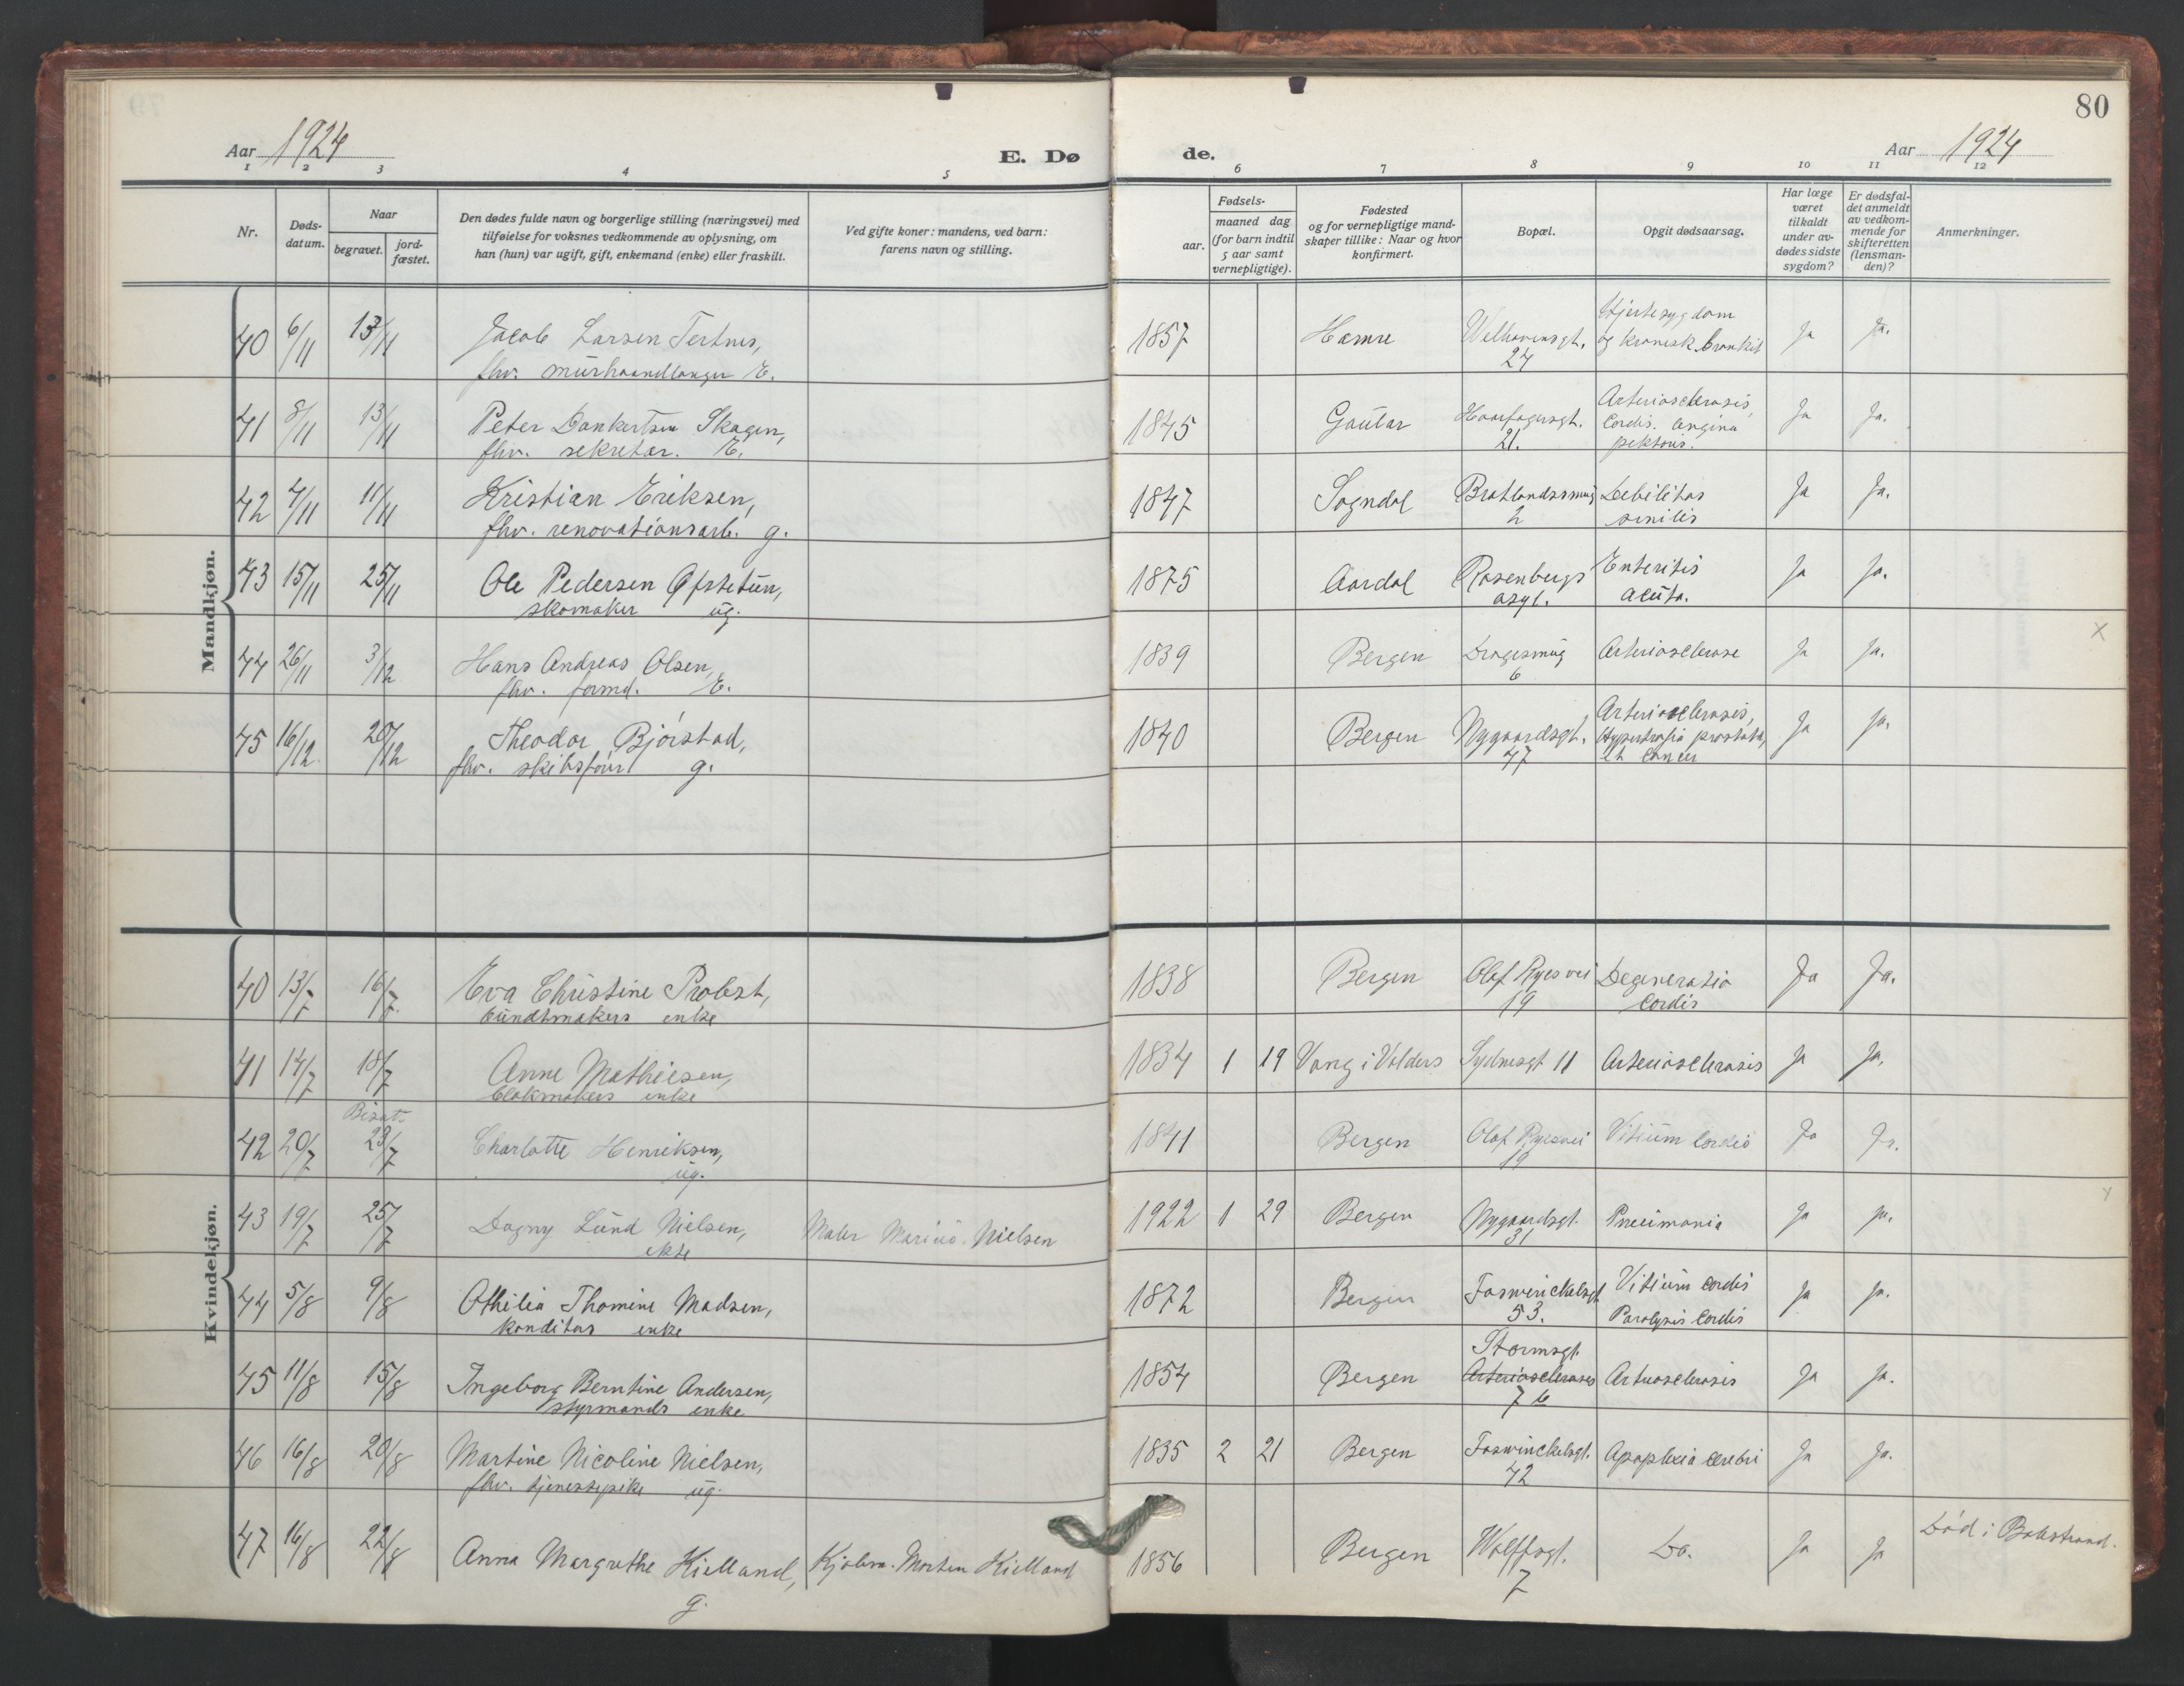 80
Aar 1924
E. Døde.
Aar 1924
1 2 3 4 5 6 7 8 9 10 11 12
Nr.
Døds-
datum.
Naar
begravet.
jord-
fæstet.
Den dødes fulde navn og borgerlige stilling (næringsvei) med
tilføielse for voksnes vedkommende av oplysning, om
han (hun) var ugift, gift, enkemand (enke) eller fraskilt.
Ved gifte koner: mandens, ved barn:
farens navn og stilling.
Fødsels-
aar.
maaned dag
(for barn indtil
5 aar samt
vernepligtige).
Fødested
og for vernepligtige mand-
skaper tillike: Naar og hvor
konfirmert.
Bopæl.
Opgit dødsaarsag.
Har læge
været
tilkaldt
under av-
dødes sidste
sygdom?
Er dødsfal-
det anmeldt
av vedkom-
mende for
skifteretten
(lensman-
den)?
Anmerkninger.
Mandkjøn.
40 6/11 13/11 Jacob Larsen Tertnes, 1857 Hamre Welhavensgt. Hjertesygdom Ja Ja.
fhv. murhaandlanger E. 24 og kronisk bronkit
41 8/11 13/11 Peter Dankertsen Skagen, 1845 Gaular Haarfagersgt. Arteriosclerosis, Ja Ja.
fhv. sekretær. E. 21. Cordis. Angina
pektoris.
42 4/11 11/11 Kristian Eriksen, 1847 Sogndal Bratlandssmug Debilitas Ja Ja.
fhv. renovationsarb. g. 2 senilis
43 15/11 25/11 Ole Pedersen Ofstetun, 1875 Aardal Rosenbergs Enteritis Ja Ja.
skomaker ug. asyl. acuta.
44 26/11 3/12 Hans Andreas Olsen, 1839 Bergen Dragesmug Arteriosclerose Ja Ja. X
fhv. formd. E. 6
45 16/12 20/12 Theodor Bjørstad, 1840 Bergen Nygaardsgt. Arteriosclerosis, Ja Ja.
fhv. skibsfører g. 47 Hypertrofia prostata,
et cancer
Kvindekjøn.
40 13/7 16/7 Eva Christine Probst, 1838 Bergen Olaf Ryes vei Degeneratio Ja Ja.
bundtmakers enke 19 Cordis
41 14/7 18/7 Anne Mathiesen, 1834 1 19 Vang i Valders Sydnesgt 11 Arteriosclerosis Ja Ja.
blokmakers enke
Bisat.
42 20/7 23/7 Charlotte Henriksen, 1841 Bergen Olaf Ryesvei Vitium Cordis Ja Ja.
ug. 19
43 19/7 25/7 Dagny Lund Nielsen, Maler Marius Nielsen 1922 1 29 Bergen Nygaardsgt. Pneumonia Ja Ja.
ekte 31
44 5/8 9/8 Othilia Thomine Madsen, 1872 Bergen Foswinckelsgt Vitium cordis Ja Ja.
konditors enke 53. Paralysis Cordis
Stormsgt.
45 11/8 15/8 Ingeborg Berntine Andersen, 1854 Bergen Arteriosclerosis Arteriosclerosis Ja Ja.
styrmands enke 7 b
46 16/8 20/8 Martine Nicoline Nielsen, 1835 2 21 Bergen Foswinckelsgt. Apoplexia cerebri Ja Ja.
fhv. tjenestepike ug. 42
47 16/8 22/8 Anna Margrethe Kielland, Kjøbm. Morten Kielland 1856 Bergen Wolffsgt. Do. Ja Ja Død i Balestrand.
g. 7